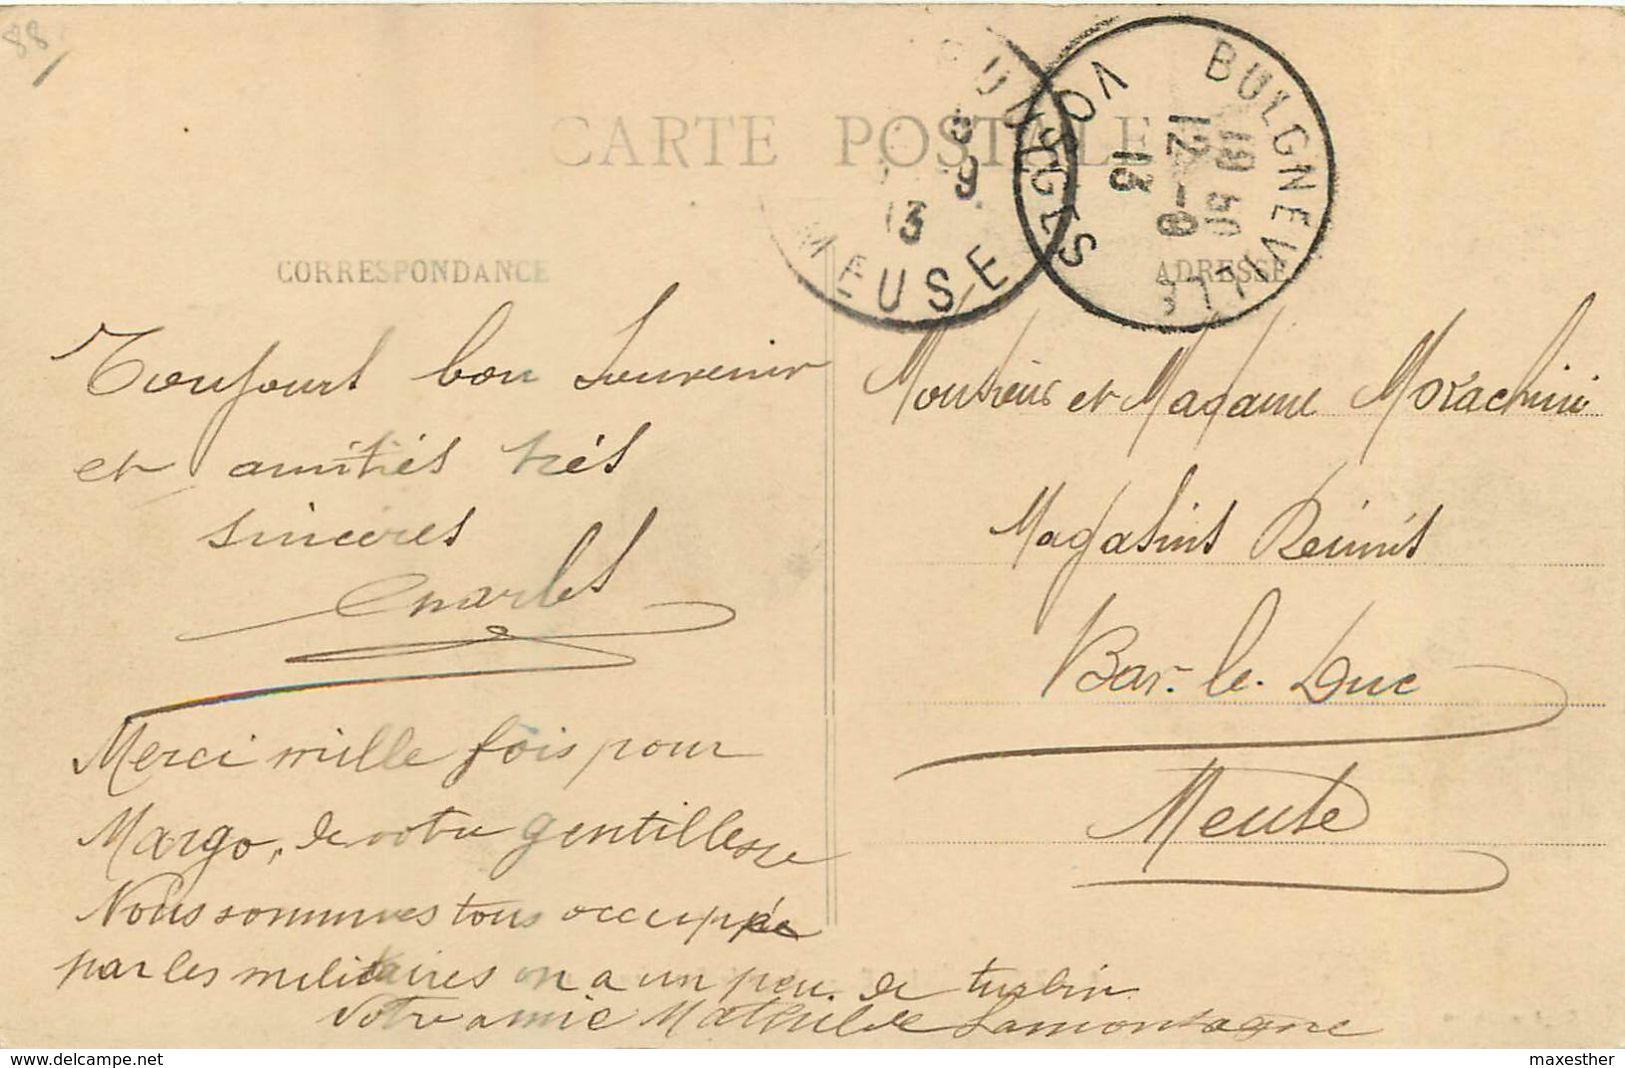 88
CARTE POSTALE
BULGNEVILLE
VOSGES
12 - 9
13
9
13
MEUSE
CORRESPONDANCE
ADRESSE
Toujours bon Souvenir
et amitiés très
sincères
Charles
Merci mille fois pour
Margo, de votre gentillesse
Nous sommes tous occuppée
par les militaires on a un peu de turbin
Votre amie Mathilde Lamontagne
Monsieur et Madame Morachini
Magasins Réunis
Bar-le-Duc
Meuse
maxesther